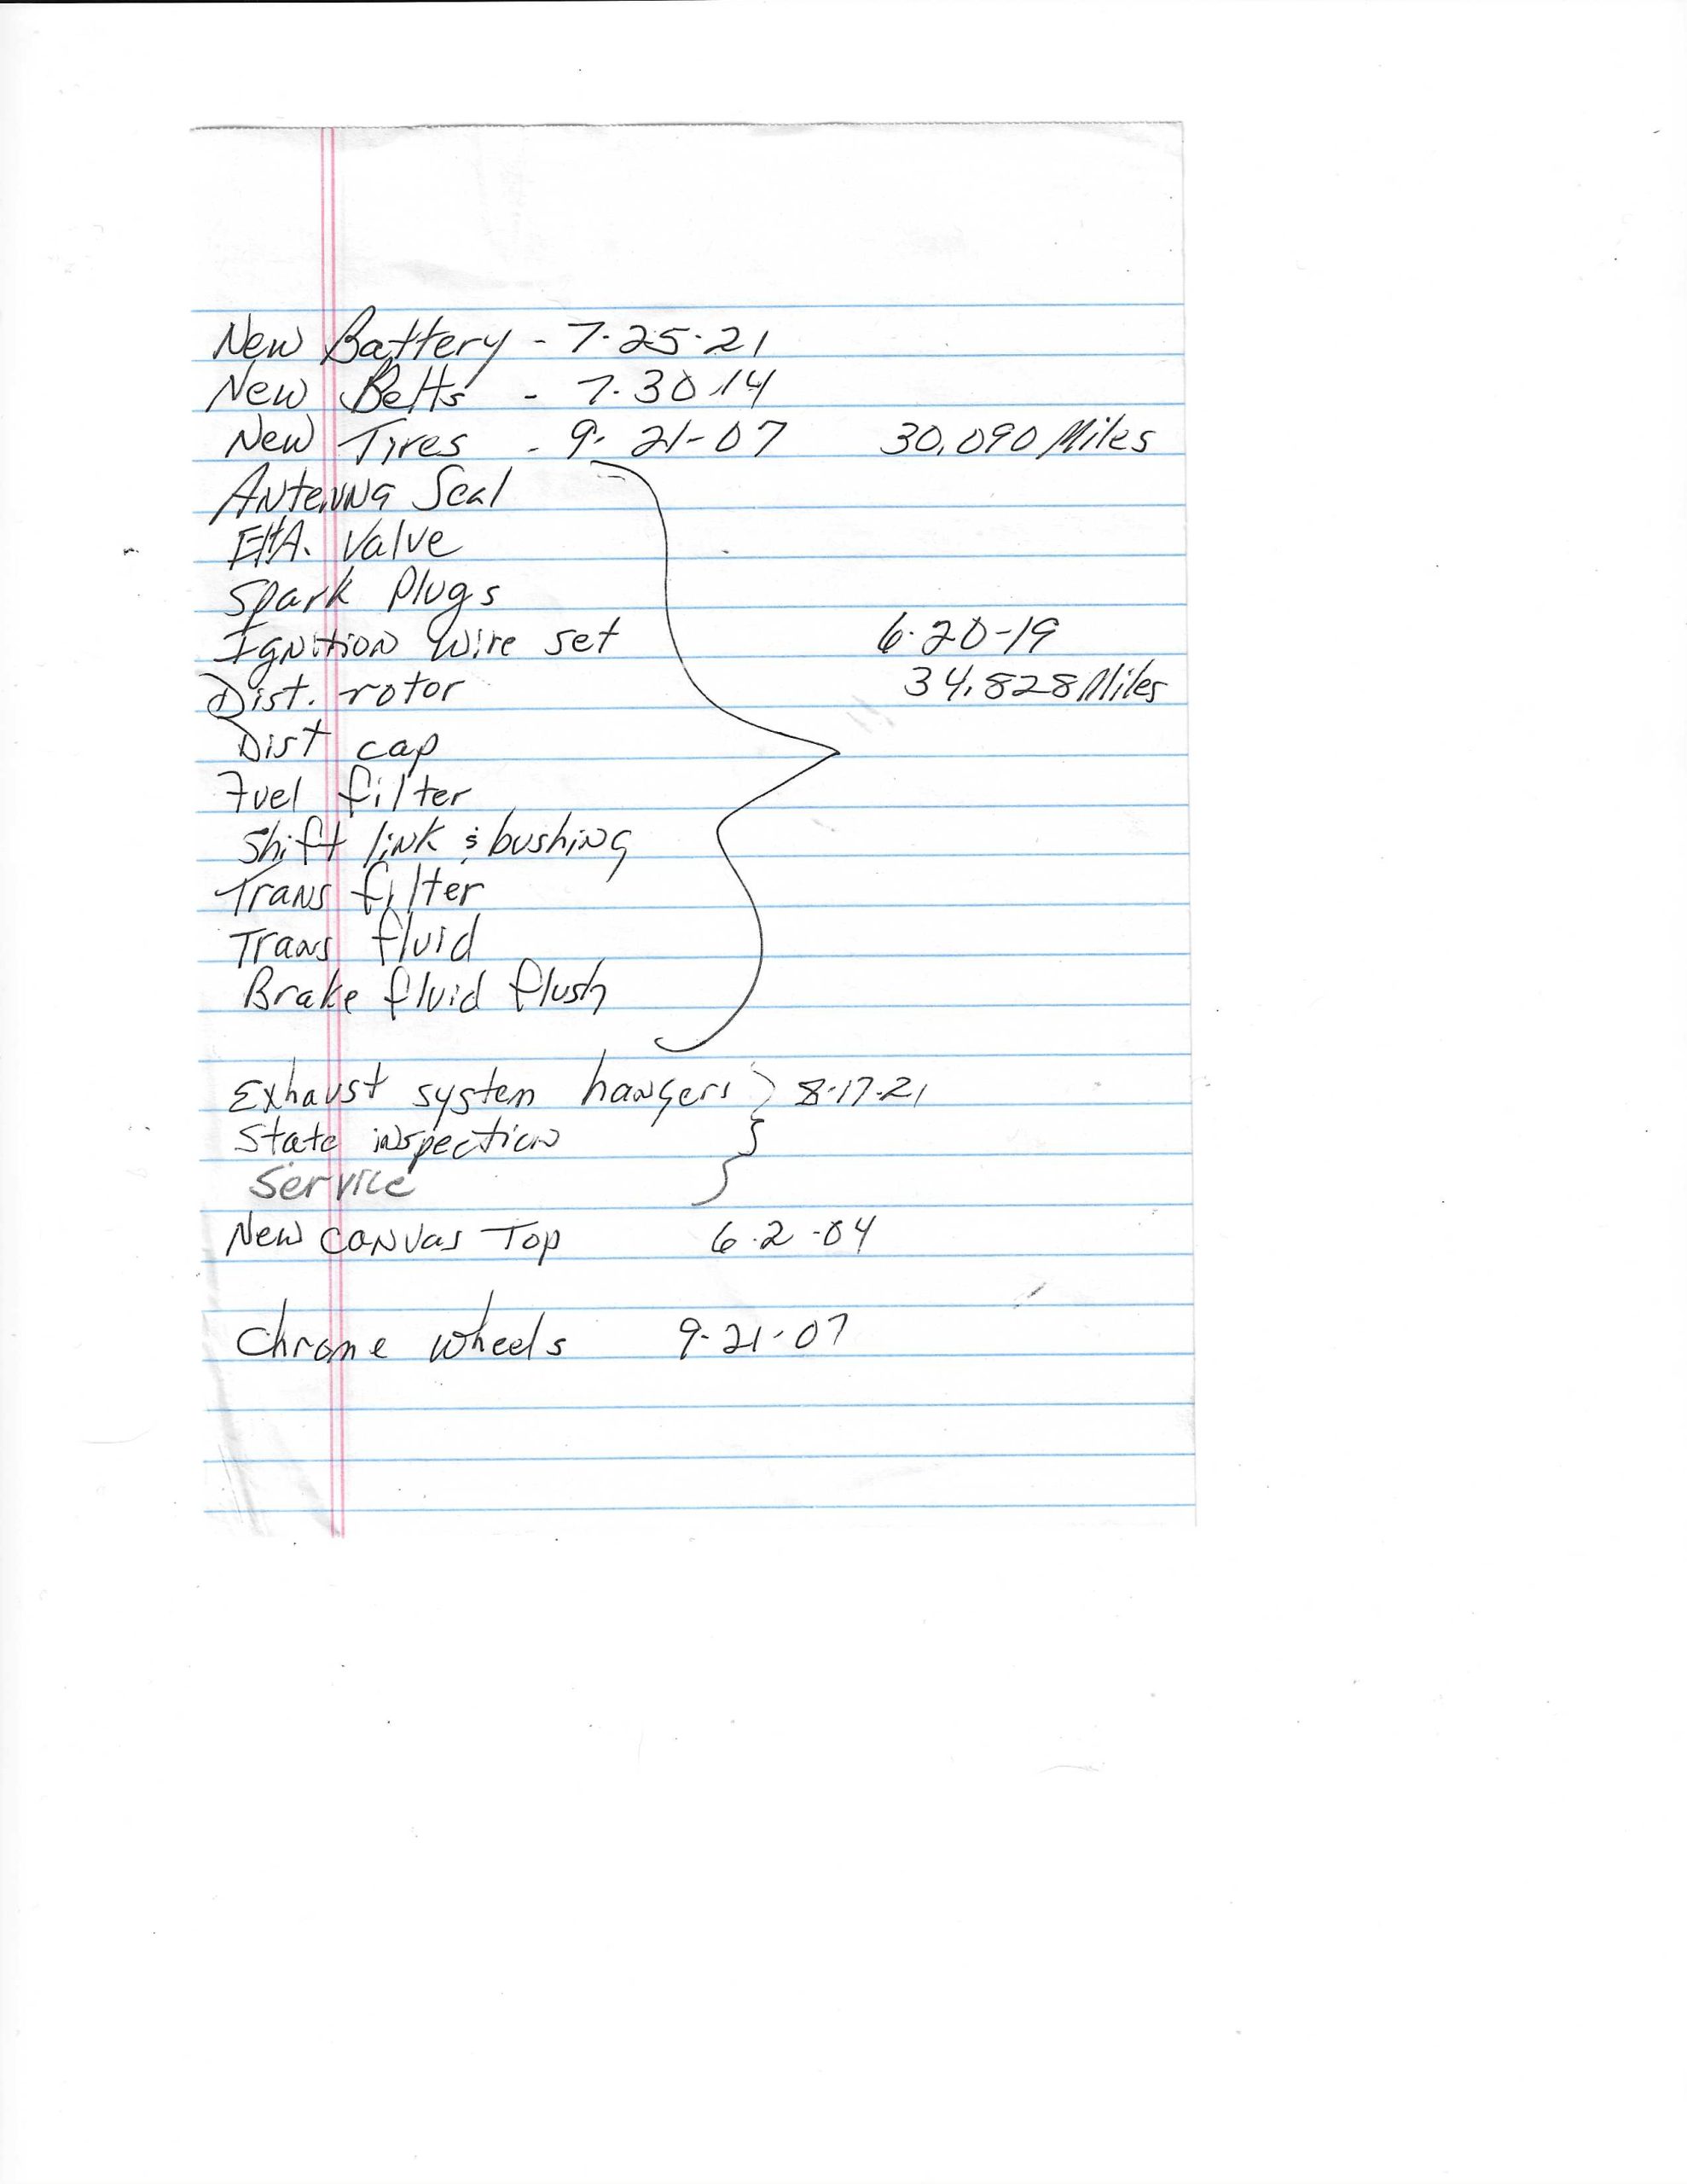 New Battery - 7.25.21
New Belts - 7.30.14
New Tires - 9-21-07 30,090 Miles
Antenna Seal
EHA. Valve
Spark Plugs
Ignition Wire set 6.20-19
Dist. rotor 34,828 Miles
Dist cap
Fuel filter
Shift link & bushing
Trans filter
Trans fluid
Brake fluid flush
Exhaust system hangers } 8.17.21
State inspection
Service
New canvas Top 6.2-04
Chrome wheels 9-21-07